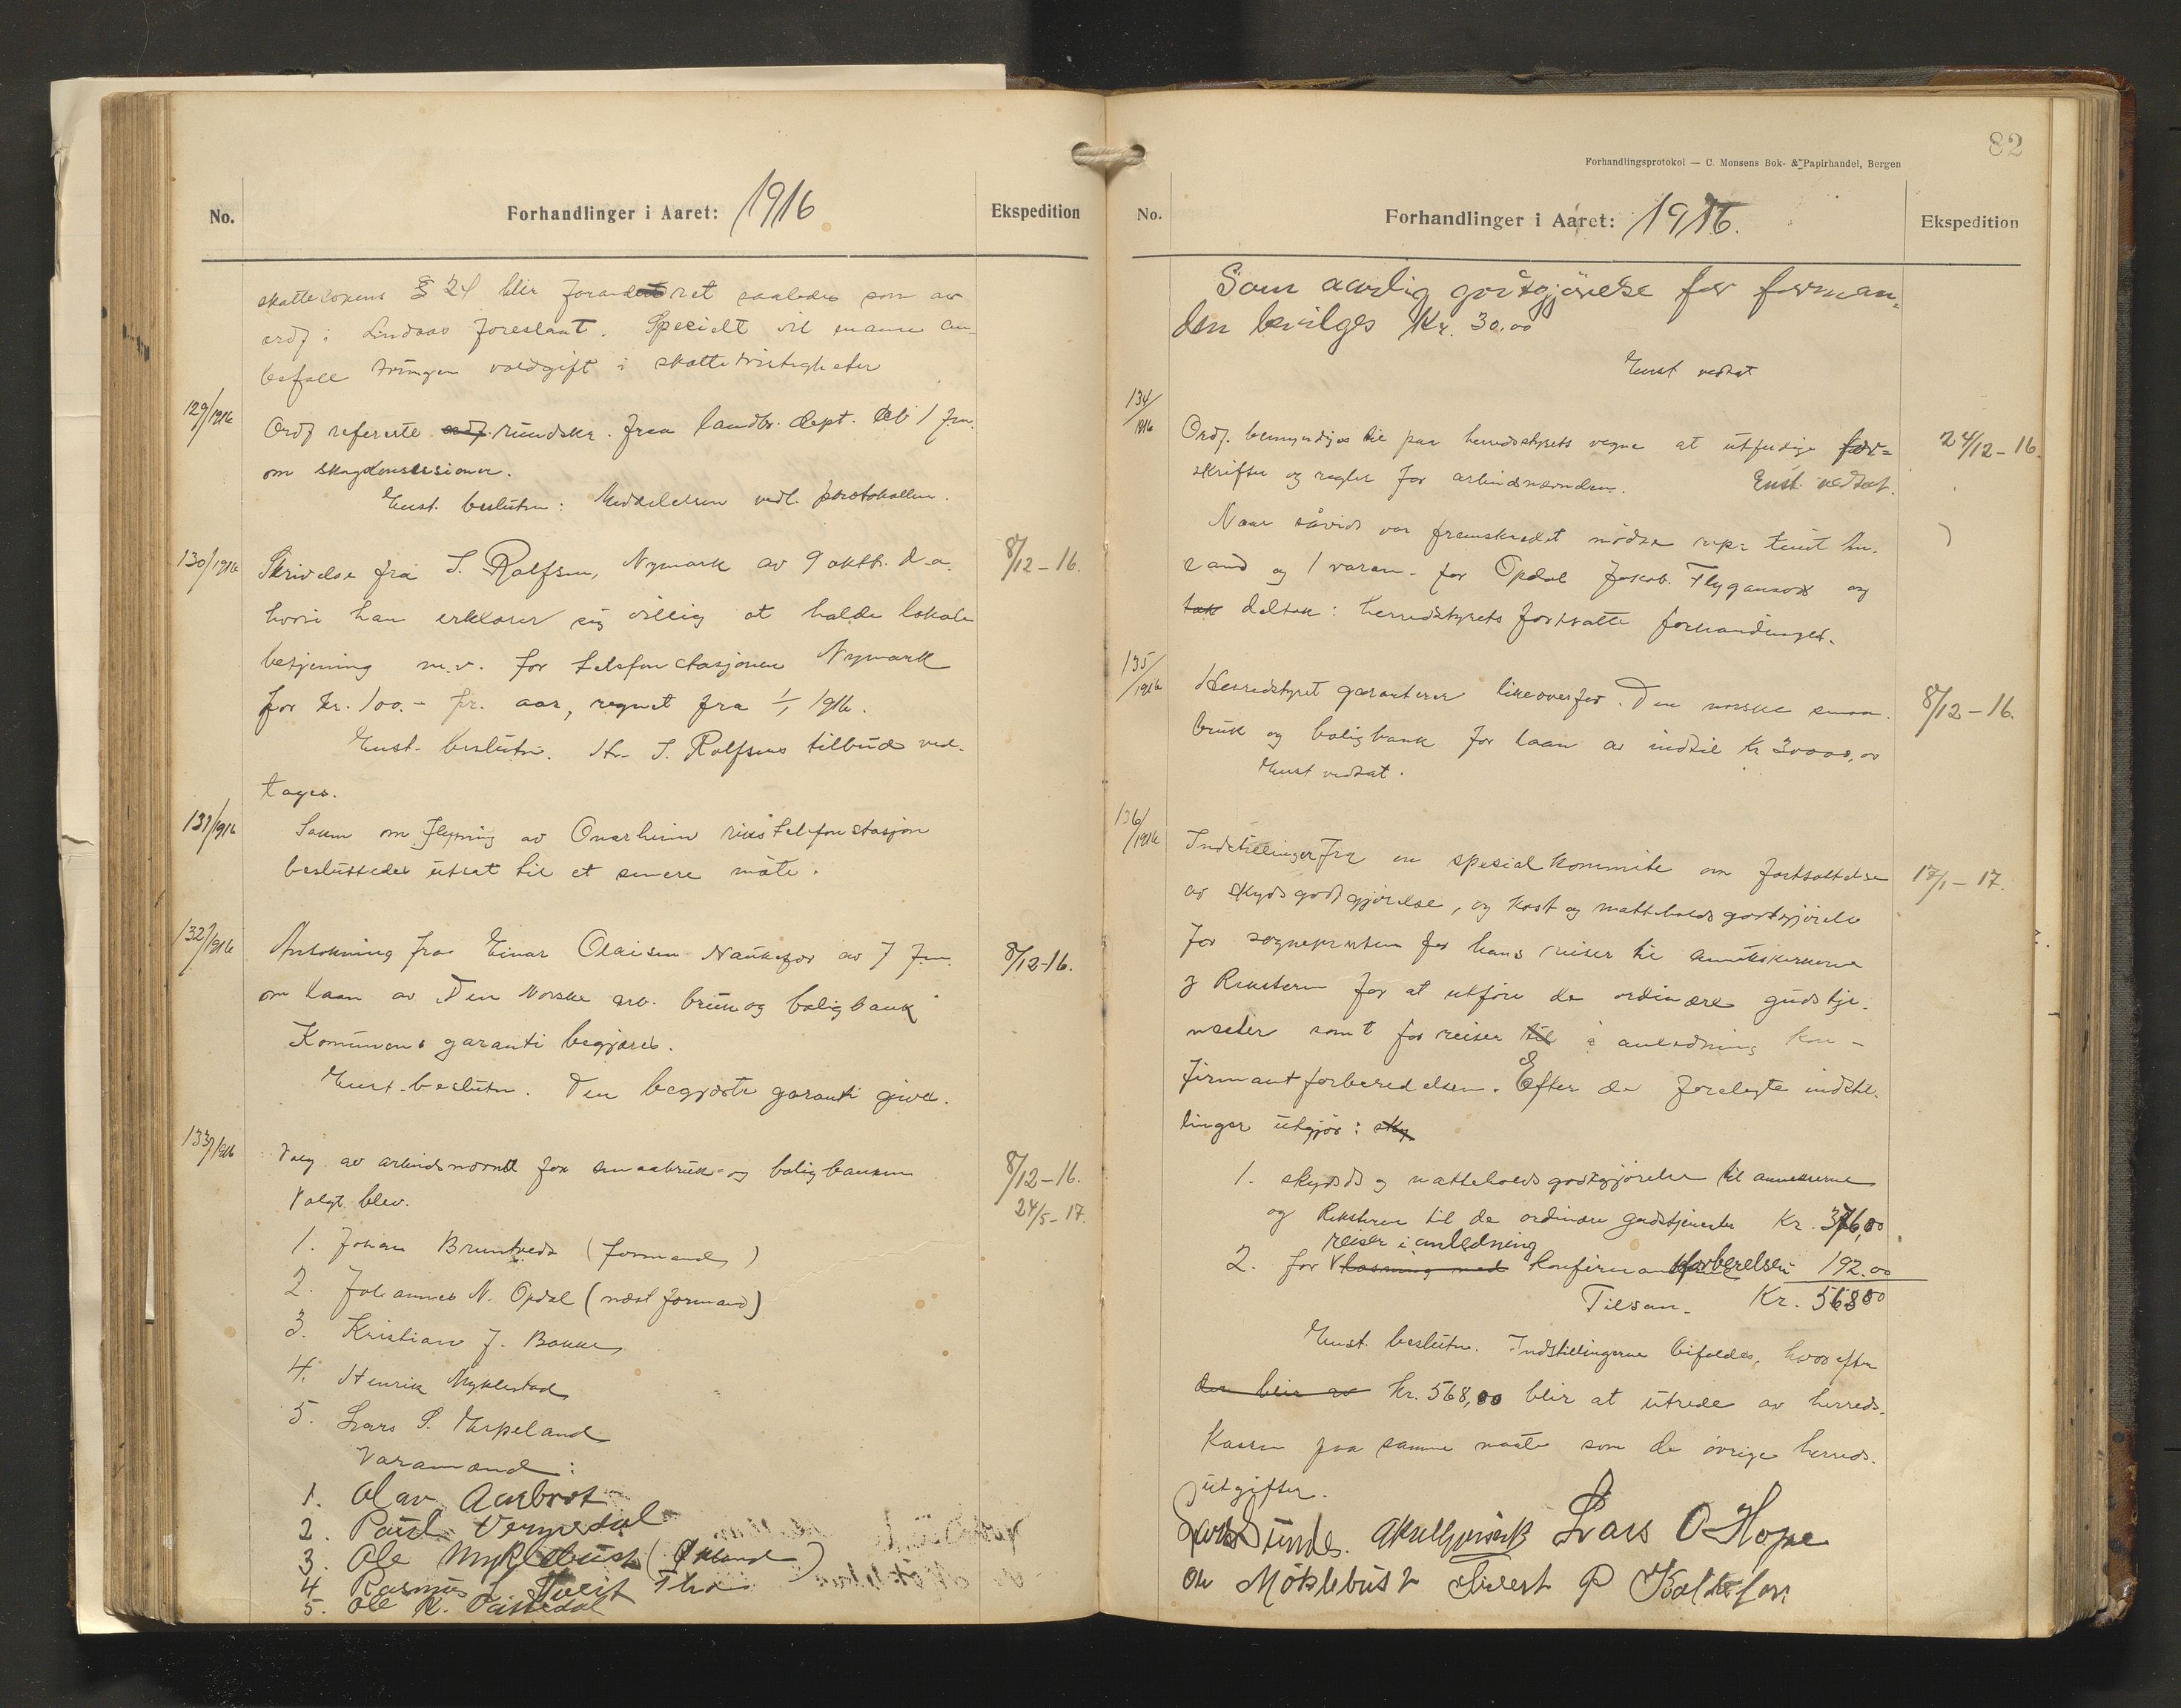 No.
Forhandlinger i Aaret: 1916
Ekspedition
skattelovens § 24 blir forandret saaledes som av
ordf i Lindaas foreslaat. Specielt vil man an-
befale tvungen voldgift i skattetvistigheter
129/1916
Ordf refererte ordf. rundskr. fra landbr. dept. av 1 f.m.
om skogkonsesioner.
Enst. beslutn: Meddelelsen vedl. protokollen.
130/1916
Skrivelse fra S. Rolfsen, Nymark av 9 oktbr. d.a.
8/12-16.
hvori han erklærer sig villig at holde lokale
betjening m.v. for telefonstasjonen Nymark
for kr. 100.- pr. aar, regnet fra 1/1 1916.
Enst. beslutn. Hr. S. Rolfsens tilbud ved-
tages.
131/1916
Saken om flytning av Onarheim rikstelefonstasjon
besluttedes utsat til et senere møte.
132/1916
Ansøkning fra Einar Olaisen av 7 f.m.
8/12-16.
om laan av Den Norske arb. bruk og boligbank
Komunens garanti begjæres.
Enst. beslutn. Den begjærte garanti gives.
133/1916
Valg av arbeidsnævnd for smaabruk- og boligbanken
8/12-16.
Valgt blev.
24/5-17.
1. Johan Bruntveds (formand)
2. Johannes N. Opdal (næst formand)
3. Kristian J. Bakke
4. Henrik Myklestad
5. Lars S. Erpeland
Varamænd:
1. Olav Aarbrot
2. Paul Vernedal
3. Ole Myklebust (Økland)
4. Rasmus L Tveit
5. Ole K.
82
Forhandlingsprotokol — C. Monsens Bok- & Papirhandel, Bergen
No.
Forhandlinger i Aaret: 1916.
Ekspedition
Som aarlig godtgjörelse for forman-
den bevilges Kr. 30.00
Enst vedtat
134/1916
Ordf. bemyndiges til paa herredstyrets vegne at utferdige for-
24/12-16.
skrifter og regler for arbeidsnævnden. Enst. vedtat.
Naar såvidt var fremskredet mødte repr.
og 1 varam. for Opdal Jakob Flygansvær og
tok deltok i herredstyrets fortsatte forhandlinger.
135/1916
Herredstyret garanterer likeoverfor Den norske smaa-
8/12-16.
bruk og boligbank for laan av indtil kr 30000,00
Enst vedtat.
136/1916
Indstillinger fra en spesialkommite om fastsættelse
17/1-17.
av skydsgodtgjørelse, og kost og natteholdsgodtgjørelse
for sogneprsten for hans reiser til annekskirkerne
og Reksteren for at utføre de ordinære gudstje-
nester samt for reiser til i anledning kon-
firmantforberedelsen. Efter de forelagte indstil-
linger utgjør: sky
1. skyds og natteholdsgodtgjørelse til annekserne
og Reksteren til de ordinære gudstjenester Kr. 376,00
reiser i anledning
2. for læsning med konfirmantforberelsen 192.00
Tilsam. Kr. 568 00
Enst. beslutn. Indstillingerne bifaldes, hvorefter
der blir av kr. 568,00 blir at utrede av herreds-
kassen paa samme maate som de øvrige herreds-
utgifter.
Lars O Hope
Ole Möklebust Sivert P